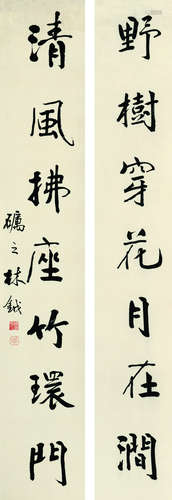 野樹穿花月在澗
清風拂座竹環門
礪之林鉞